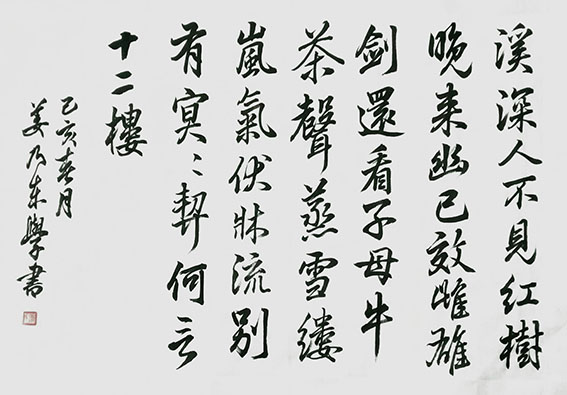 溪深人不見紅樹
晚来幽已效雌雄
劍還看子母牛
茶聲蒸雪縷
嵐氣伏牀流别
有冥〻契何言
十二樓
己亥春月
姜乃东學書